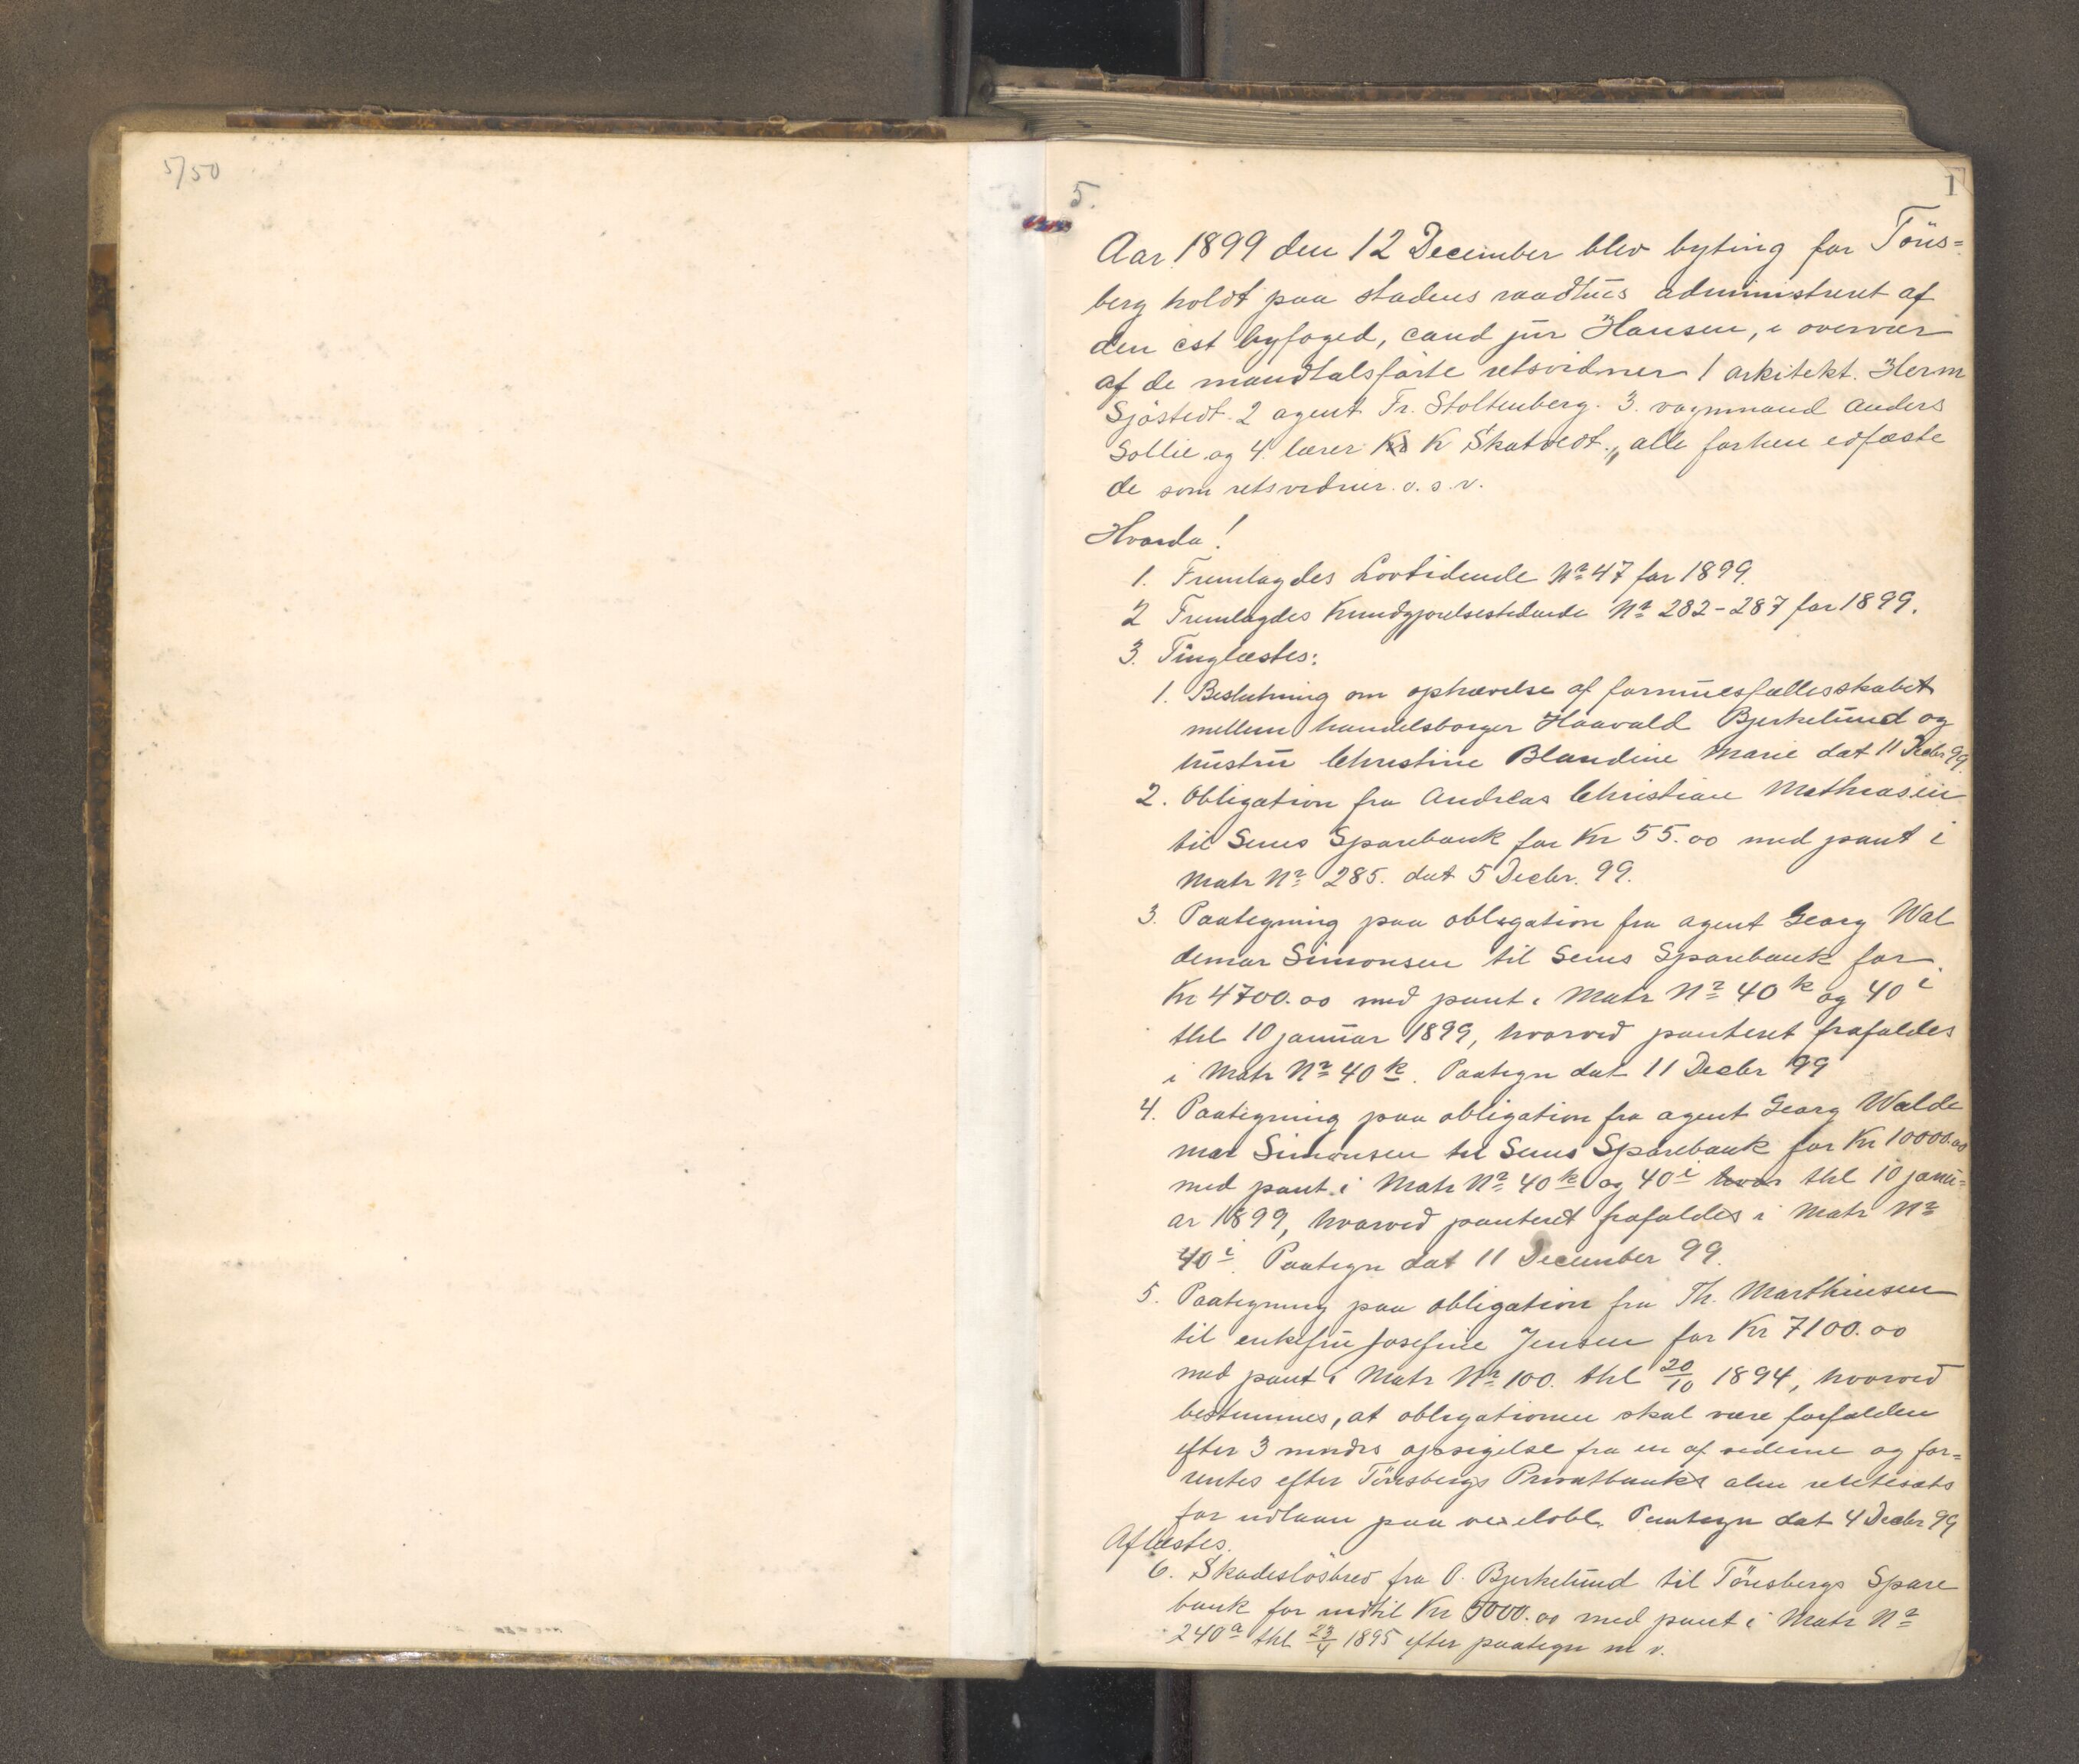 5/50
1
5.
Aar 1899 den 12 December blev byting for Töns=
berg holdt paa stadens raadhus administreret af
den cst byfoged, cand jur Hansen, i overvær
af de mandtalsførte retsvidner 1 arkitekt. Herm
Sjöstedt. 2 agent Fr. Stoltenberg. 3. vognmand Anders
Sollie og 4. lærer K Skatvedt., alle forhen edfæste
de som retsvidner. o. s. v.
Hvorda!
1. Fremlagdes Lovtidende No 47 for 1899.
2 Fremlagdes Kundgjørelsestidende No 282-287 for 1899.
3. Tinglæstes:
1. Beslutning om ophævelse af formuesfællesskabet
mellem handelsborger Haavald Bjerkelund og
hustru Christine Blandine Marie dat 11 Decbr 99.
2. Obligation fra Andreas Christian Mathiasen
til Sems Sparebank for Kr 55.00 med pant i
Matr No 285. dat 5 Decbr. 99.
3. Paategning paa obligation fra agent Georg Wal
demar Simonsen til Sems Sparebank for
Kr 4700.00 med pant i Matr No 40 k og 40 i
thl 10 januar 1899, hvorved panteret frafaldes
i Matr No 40 k. Paategn dat 11 Decbr 99
4. Paategning paa obligation fra agent Georg Walde
mar Simonsen til Sems Sparebank for Kr 10000.00
med pant i Matr No 40 k og 40 i hvor thl 10 janu=
ar 1899, hvorved panteret frafaldes i Matr No
40 i. Paategn dat 11 December 99.
5. Paategning paa obligation fra Th. Marthinsen
til enkefru Josefine Jensen for Kr 7100.00
med pant i Matr No 100. thl 20/10 1894, hvorved
bestemmes, at obligationen skal være forfalden
efter 3 mndrs opsigelse fra en af siderne og for=
rentes efter Tönsbergs Privatbanks alm rentesats
for udlaan paa vexelobl. Paategn dat 4 Decbr 99
Aflæstes.
6. Skadeslösbrev fra O. Bjerkelund til Tönsbergs Spare
bank for indtil Kr 5000.00 med pant i Matr No
240 a thl 23/4 1895 efter paategn m v.